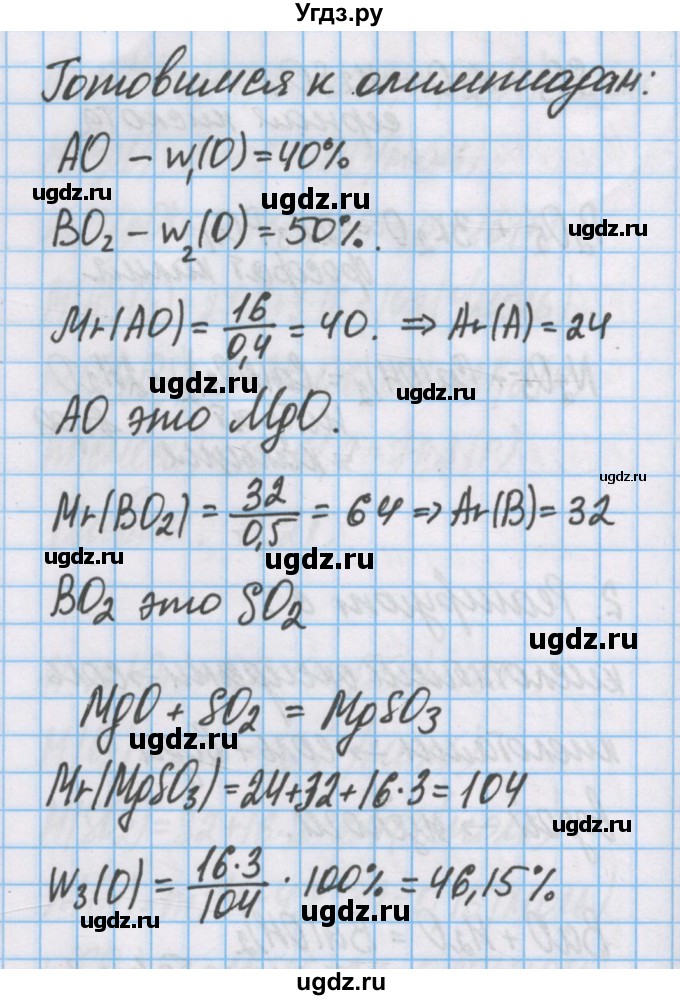 Угдз.ру
Готовимся к олимпиадам:
AO – w₁(O) = 40%
ugdz.ru ugdz.ru
BO₂ – w₂(O) = 50%.
ugdz.ru
Mr(AO) = 16/0,4 = 40. ⇒ Ar(A) = 24
ugdz.ru ugdz.ru
AO это MgO.
ugdz.ru
Mr(BO₂) = 32/0,5 = 64 ⇒ Ar(B) = 32
ugdz.ru ugdz.ru
BO₂ это SO₂
ugdz.ru
MgO + SO₂ = MgSO₃
ugdz.ru
Mr(MgSO₃) = 24+32+16·3 = 104
ugdz.ru
W₃(O) = 16·3/104 · 100% = 46,15%
ugdz.ru ugdz.ru
ugdz.ru